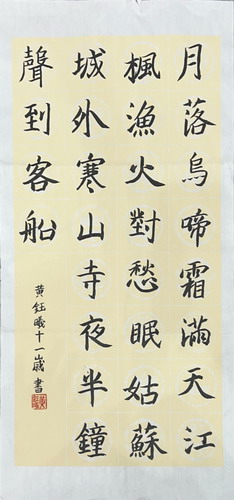 月落烏啼霜滿天江
楓漁火對愁眠姑蘇
城外寒山寺夜半鐘
聲到客船
黃鈺曦十一歲書